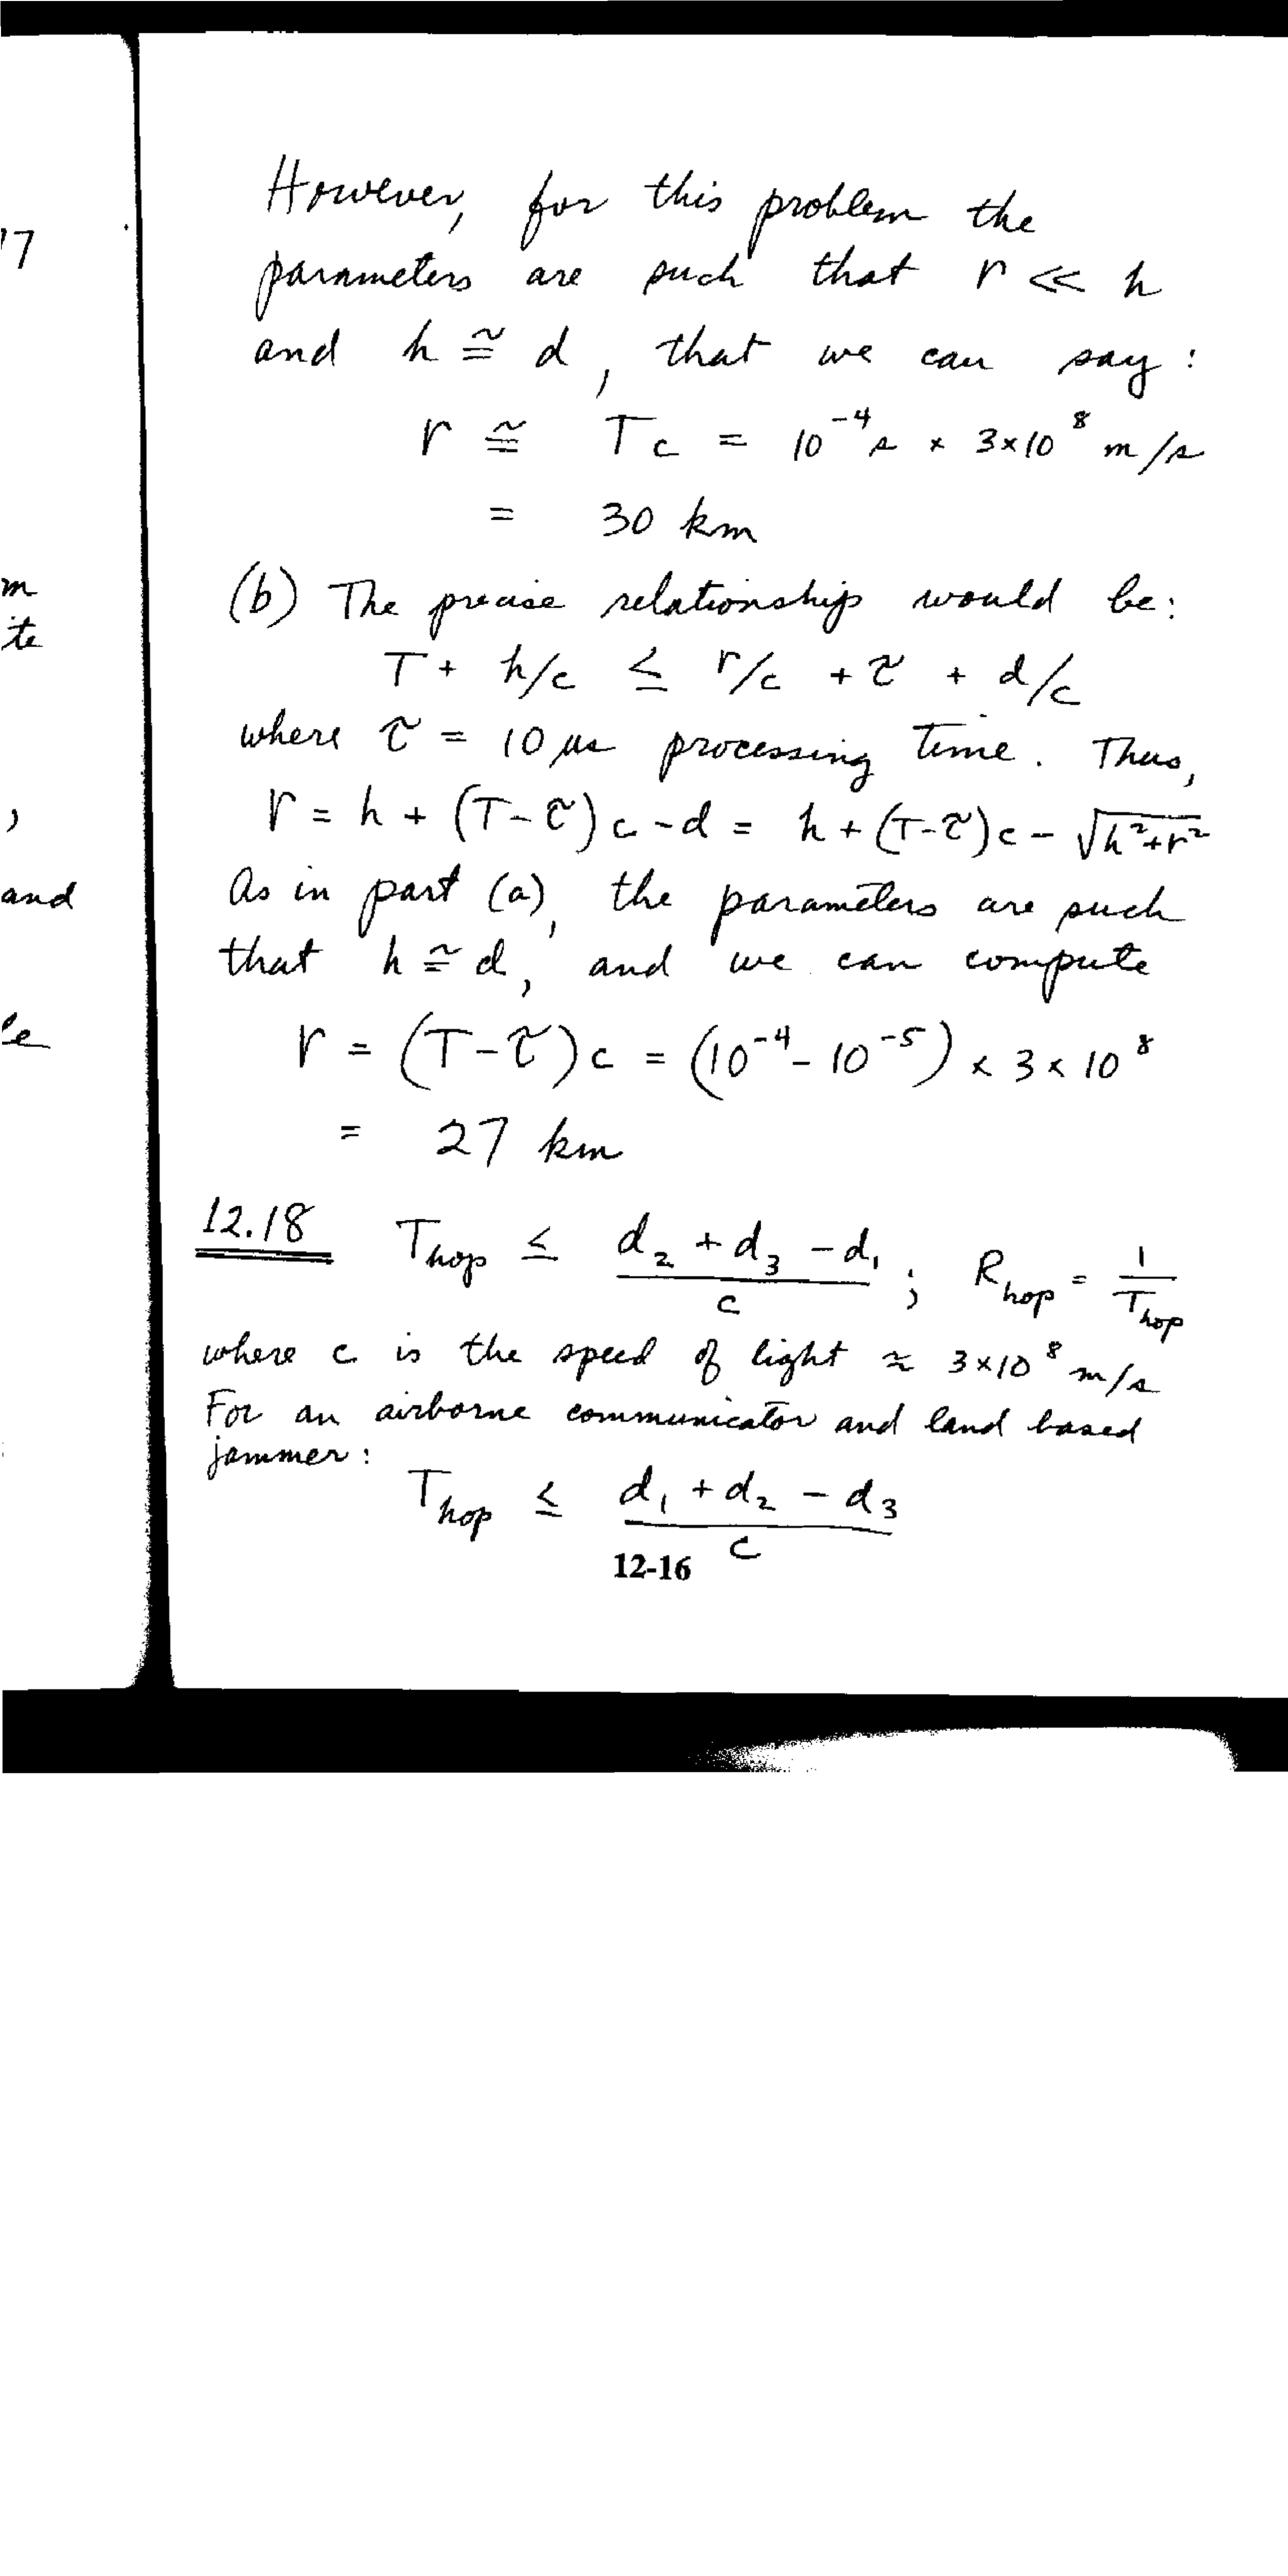 '7
m
ite
,
and
le
However, for this problem the
parameters are such that r << h
and h ≅ d, that we can say:
r ≅ Tc = 10⁻⁴ s × 3×10⁸ m/s
= 30 km
(b) The precise relationship would be:
T + h/c ≤ r/c + τ + d/c
where τ = 10 μs processing time. Thus,
r = h + (T-τ)c - d = h + (T-τ)c - √h²+r²
As in part (a), the parameters are such
that h ≅ d, and we can compute
r = (T-τ)c = (10⁻⁴ - 10⁻⁵) × 3 × 10⁸
= 27 km
12.18 T_hop ≤ (d₂ + d₃ - d₁)/c ; R_hop = 1/T_hop
where c is the speed of light ≈ 3×10⁸ m/s
For an airborne communicator and land based
jammer:
T_hop ≤ (d₁ + d₂ - d₃)/c
12-16